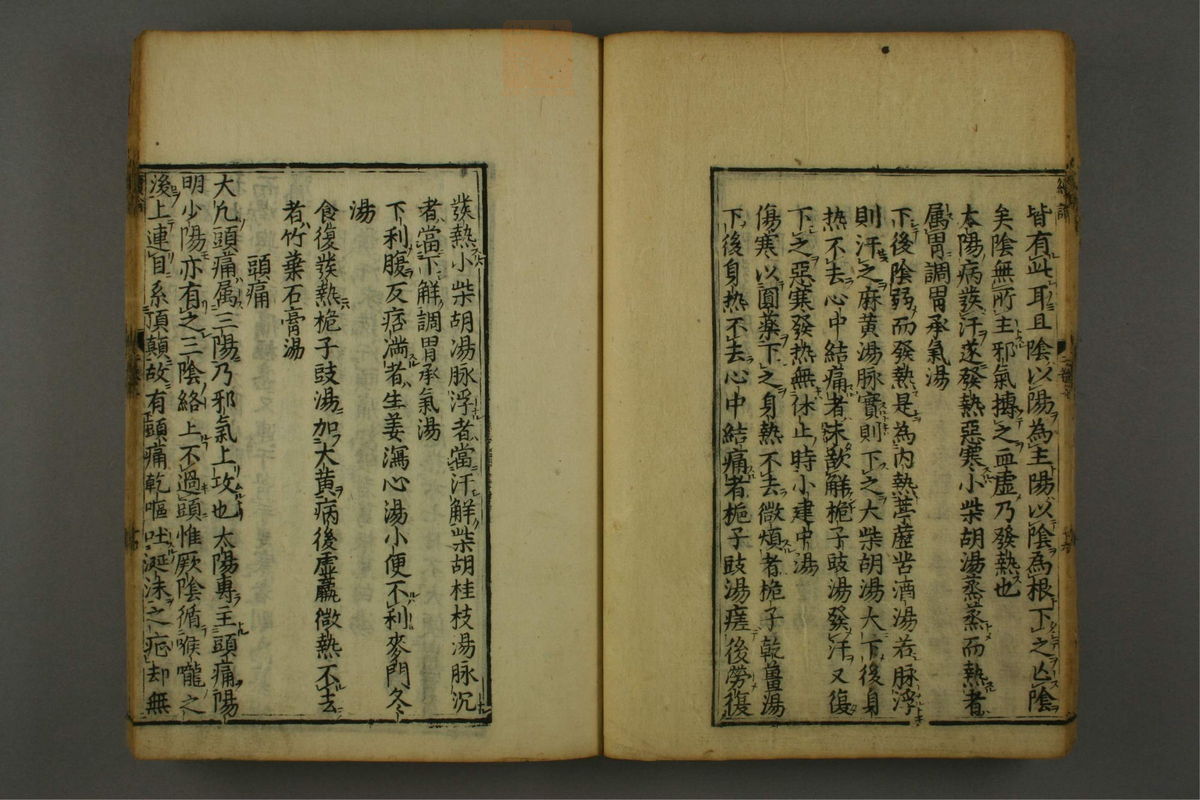 皆有此耳且陰以陽為主陽以陰為根下之亾陰
矣陰無所主邪氣搏之血虚乃發熱也
太陽病發汗遂發熱惡寒小柴胡湯蒸蒸而熱者
属胃調胃承氣湯
下後陰弱而發熱是為内熱葶藶苦酒湯若脉浮
則汗之麻黄湯脉實則下之大柴胡湯大下後身
熱不去心中結痛者未欲解梔子豉湯發汗又復
下之惡寒發热無休止時小建中湯
傷寒以圓藥下之身熱不去微煩者梔子乾薑湯
下後身热不去心中結痛者梔子豉湯瘥後勞復
發熱小柴胡湯脉浮者當汗解柴胡桂枝湯脉沉
者當下解調胃承氣湯
下利腹反痞満者生姜瀉心湯小便不利麥門冬
湯
食復發熱梔子豉湯加大黄病後虚羸微熱不去
者竹葉石膏湯
頭痛
大凢頭痛属三陽乃邪氣上攻也太陽專主頭痛陽
明少陽亦有之三陰絡上不過頭惟厥陰循喉嚨之
後上連目系頂巔故有頭痛乾嘔吐涎沫之症却無